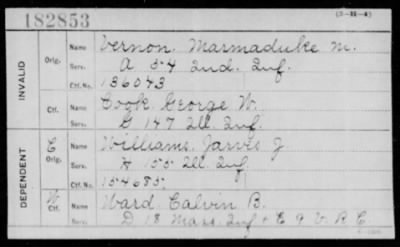 182853
(3-11-4)
INVALID
Orig. Name Vernon. Marmaduke M.
Serv. A 54 Ind. Inf.
Ctf. No. 136043
Ctf. Name Cook George W.
Serv. G 147 Ill. Inf.
DEPENDENT
C Orig. Name Williams. Jarvis J.
Serv. H 155 Ill. Inf.
Ctf. No. 154685
W Ctf. Name Ward. Calvin B.
Serv. D 18 Mass. Inf + E 9 V. R C